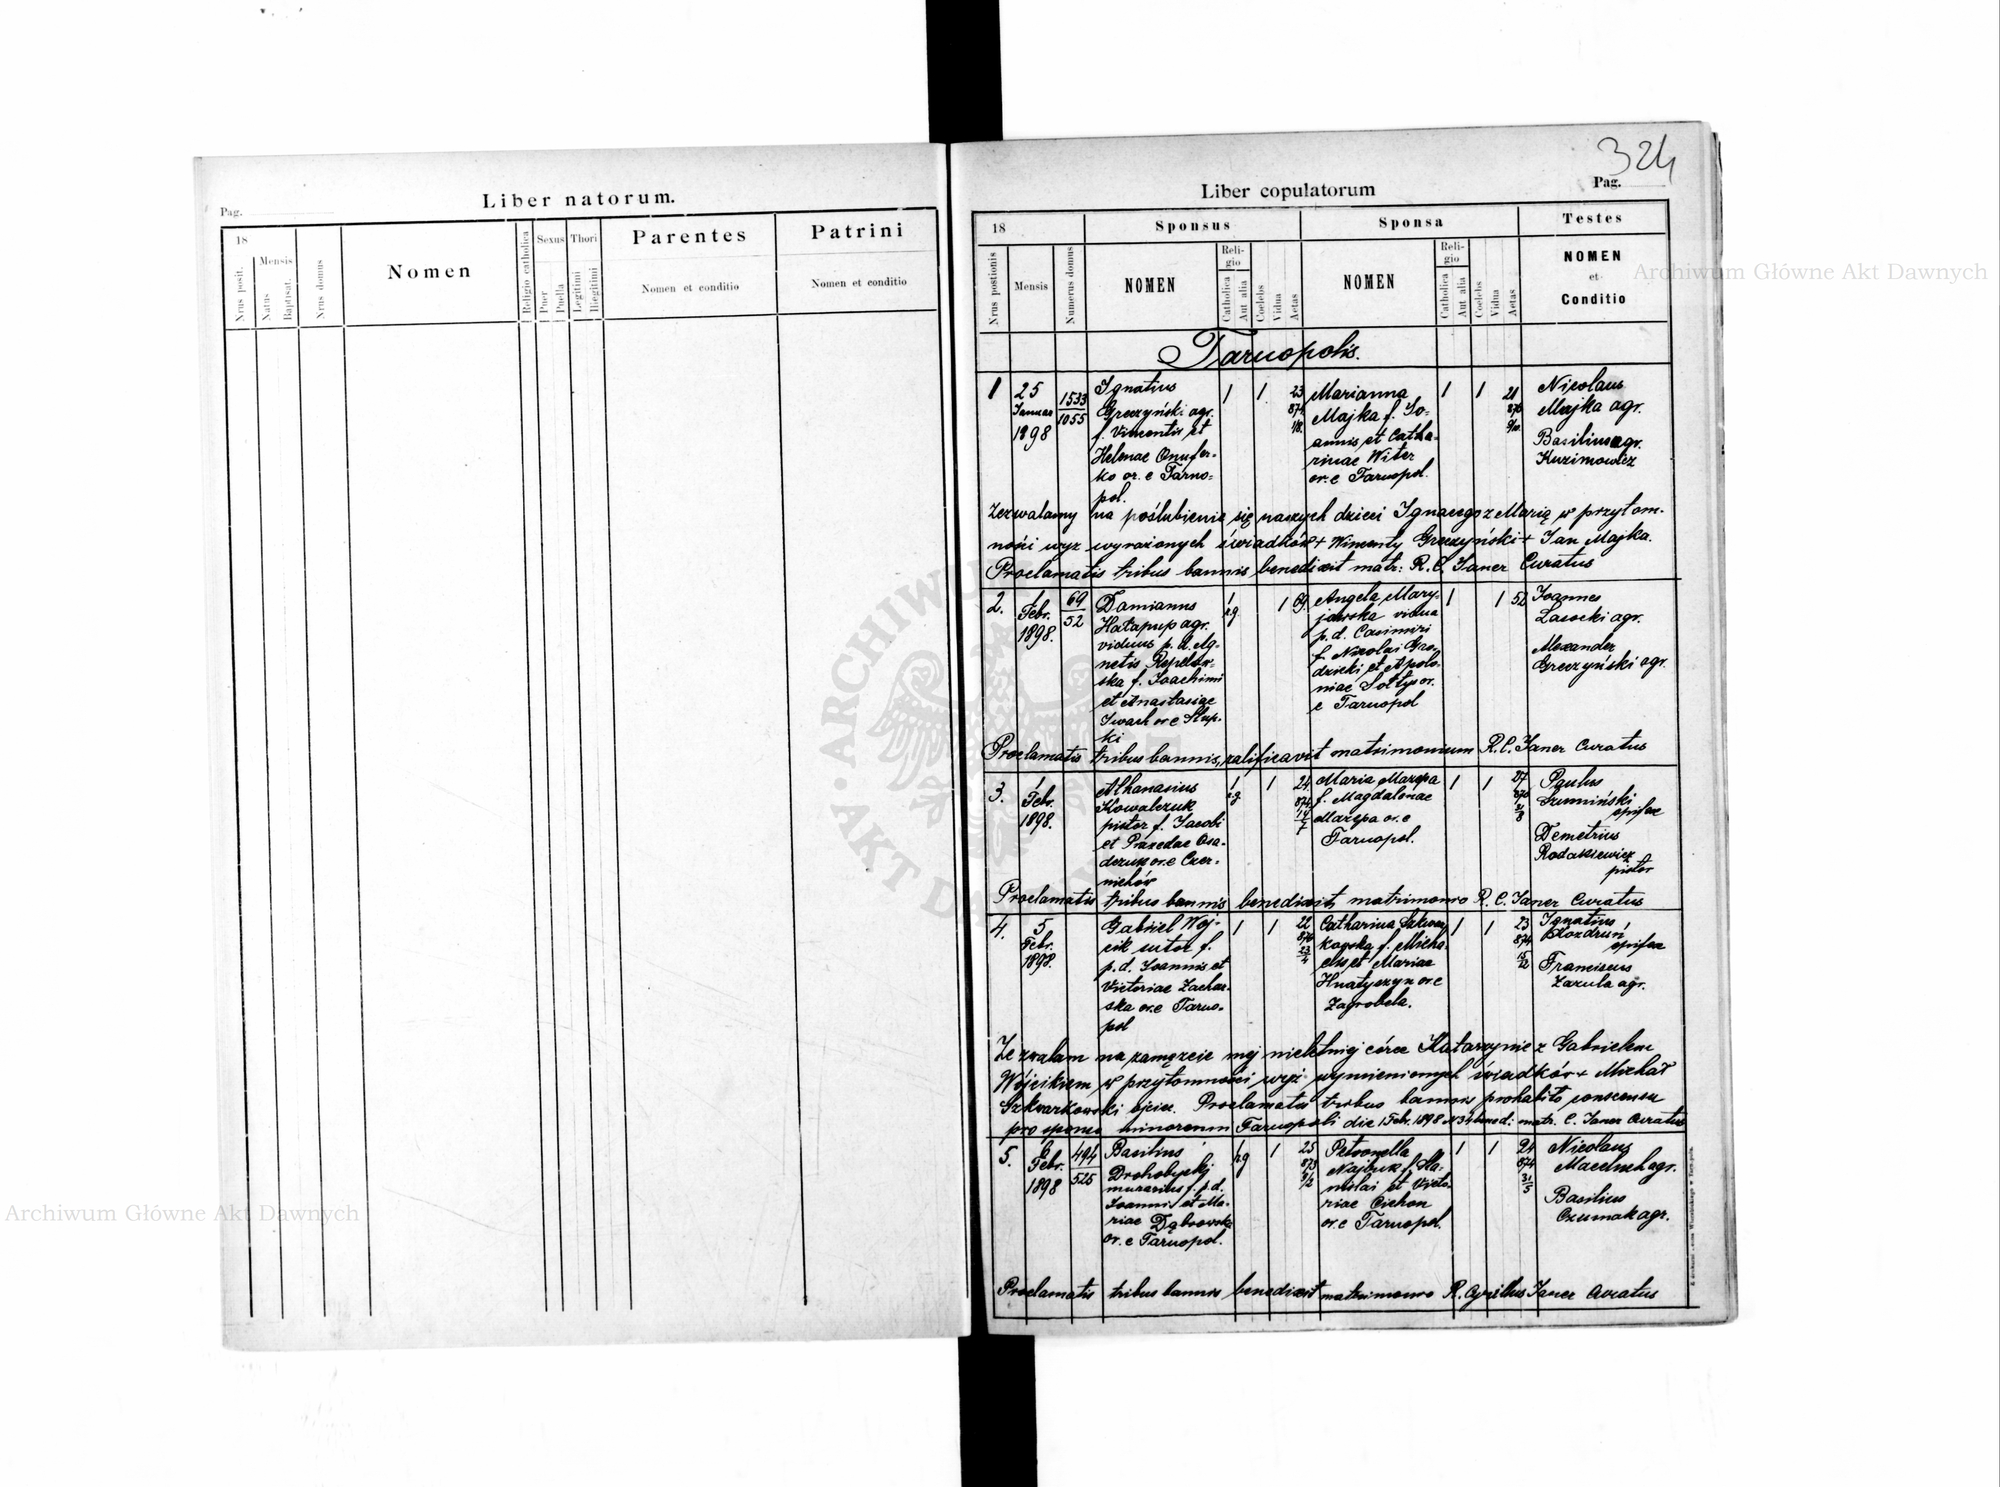 Liber natorum.
Pag.
18
Nrus posit.
Mensis
Natus
Baptisat.
Nrus domus
Nomen
Religio catholica
Sexus
Puer
Puella
Thori
Legitimi
Illegitimi
Parentes
Nomen et conditio
Patrini
Nomen et conditio
324
Liber copulatorum
Pag.
18
Sponsus
Sponsa
Testes
Nrus postionis
Mensis
Numerus domus
NOMEN
Religio
Catholica
Aut alia
Coelebs
Vidua
Aetas
NOMEN
Religio
Catholica
Aut alia
Coelebs
Vidua
Aetas
NOMEN
et
Conditio
Tarnopolis.
1
25
Januar
1898
1533
1055
Ignatius
Greczyński agr.
f. Vincentis et
Helenae Onufer-
ko or. e Tarno-
pol.
1
1
23
874
Marianna
Majka f. Jo-
annis et Catha-
rinae Witer
or. e Tarnopol.
1
1
21
876
Nicolaus
Majka agr.
Basilius agr.
Kuzimowicz
Zezwalamy na poślubienie się naszych dzieci Ignacego z Marią w przytom-
ności wyż wyrażonych świadków + Wincenty Greczyński + Jan Majka.
Proclamatis tribus bannis benedixit matr: R. C. Janer Curatus
2.
1
Febr.
1898.
69
52
Damianus
Hatapup agr.
viduus p. d. Ag-
netis
ska f. Joachimi
et Anastasiae
Iwach or e Słup-
ki
1
r.g.
1
69
Angela Mary-
jowska vidua
p. d. Casimiri
f. Nicolai Gro-
dzicki et Apolo-
niae Sołtys or.
e Tarnopol
1
1
52
Joannes
Lasocki agr.
Alexander
Greczyński agr.
Proclamatis tribus bannis, ratificavit matrimonium R. C. Janer Curatus
3.
1
Febr.
1898.
Athanasius
Kowalczuk
pistor f. Jacobi
et Praxedae Osa-
dczuk or. e Czer-
nichów
1
r.g.
1
24
874
14
7
Maria Mazepa
f. Magdalenae
Mazepa or. e
Tarnopol.
1
1
27
870
Paulus
Szumiński
opifex
Demetrius
Rodakiewicz
pistor
Proclamatis tribus bannis benedixit matrimonio R. C. Janer Curatus
4.
5
Febr.
1898.
Gabriel Wój-
cik sutor f.
p. d. Joannis et
Victoriae Zachar-
ska or. e Tarno-
pol
1
1
22
876
23
4
Catharina Szkwar-
kowska f. Micha-
elis et Mariae
Hnatyszyn or. e
Zagrobela.
1
1
23
874
15
12
Ignatius
Kozdruń
opifex
Franciscus
Zazula agr.
Zezwalam na zamęzcie mej nieletniej córce Katarzynie z Gabrielem
Wójcikiem w przytomności wyż wymienionych świadków + Michał
Szkwarkowski ojciec. Proclamatis tribus bannis prohabito consensu
pro sponsa minorenni Tarnopoli die 1 Febr. 1898 N 34 bened: matr. C. Janer Curatus
5.
6
Febr.
1898
494
525
Basilius
Drohobycki
murarius f. p. d.
Joannis et Ma-
riae Dąbrowska
or. e Tarnopol.
1
r.g
1
25
873
Petronella
Najbuk f. Sta-
nislai et Victo-
riae Cichon
or. e Tarnopol.
1
1
24
874
31
5
Nicolaus
Maceluch agr.
Basilius
Czumak agr.
Proclamatis tribus bannis benedixit matrimonio R. Cyrillus Janer Curatus
Archiwum Główne Akt Dawnych
Archiwum Główne Akt Dawnych
ARCHIWUM
AKT DAWNYCH